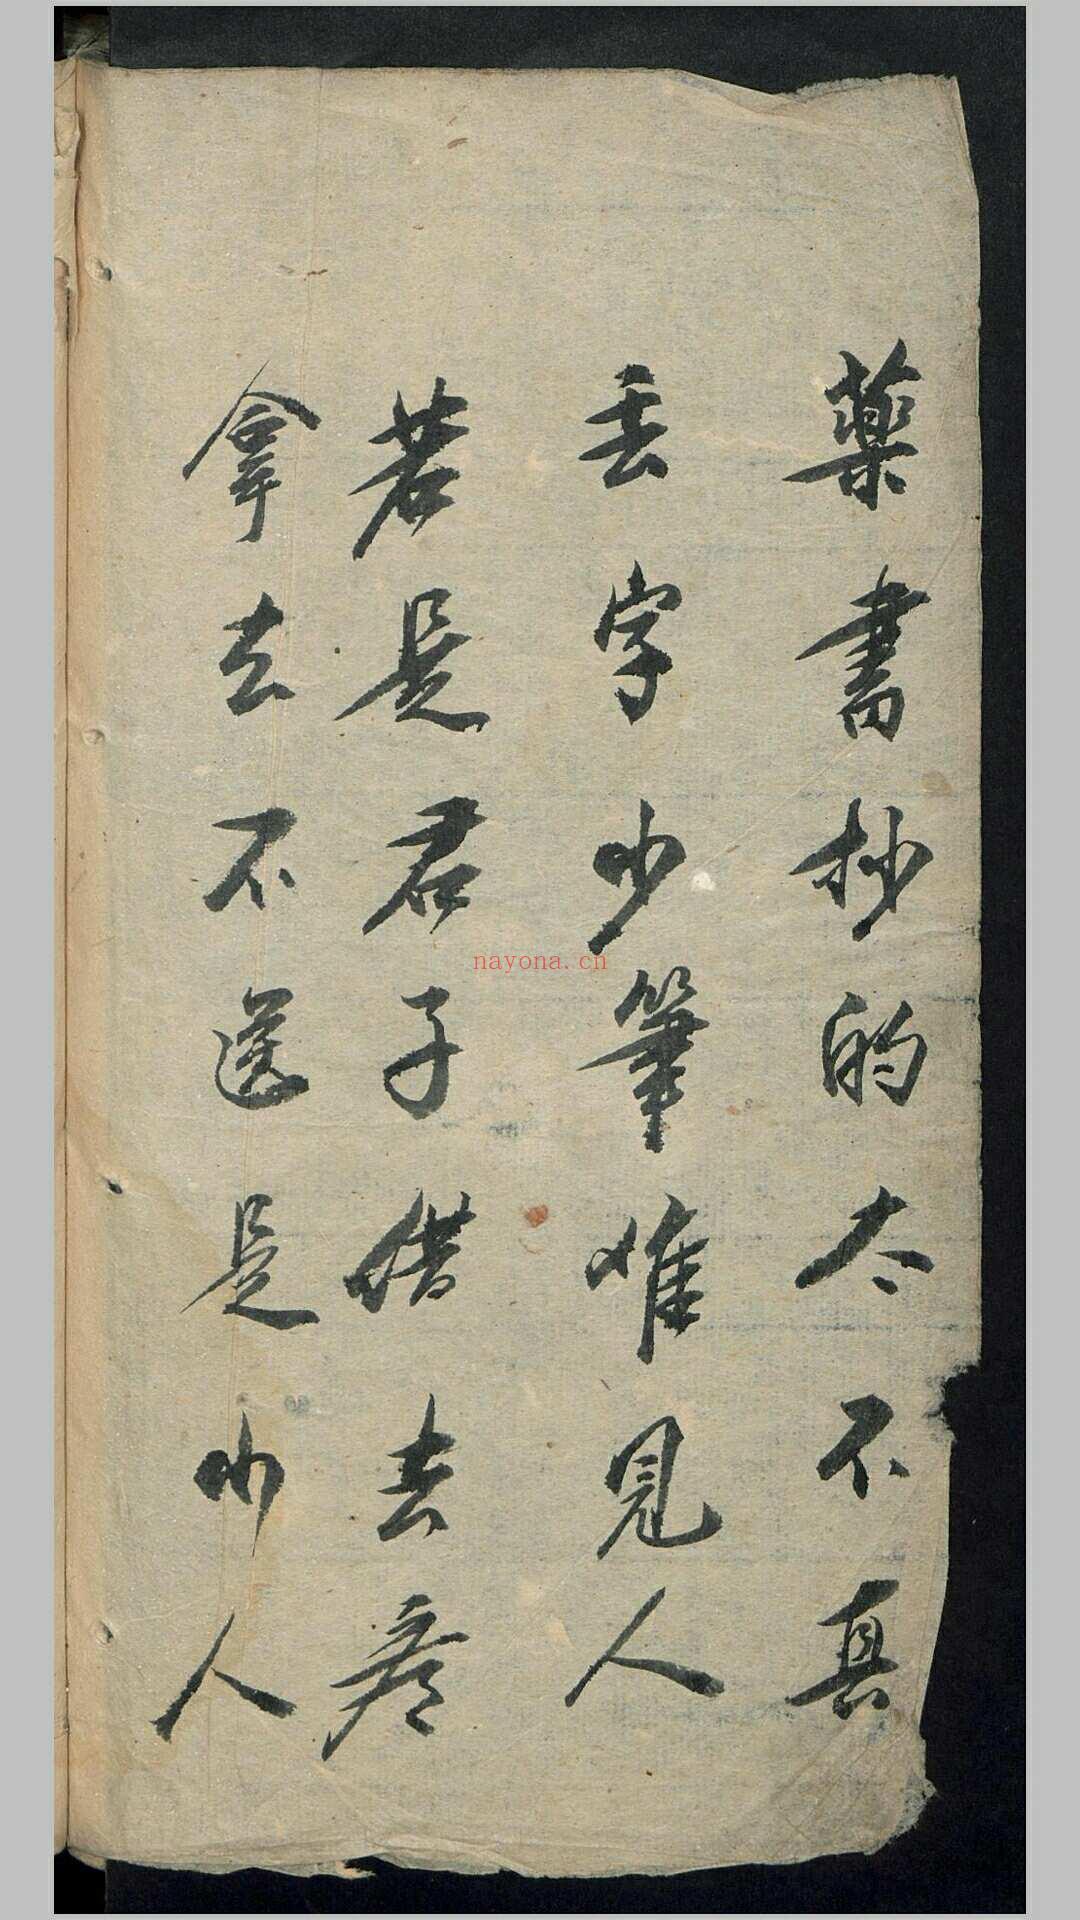 藥書抄的太不真
丢字少筆难見人
若是君子借去
拿去不送是小人
nayona.cn